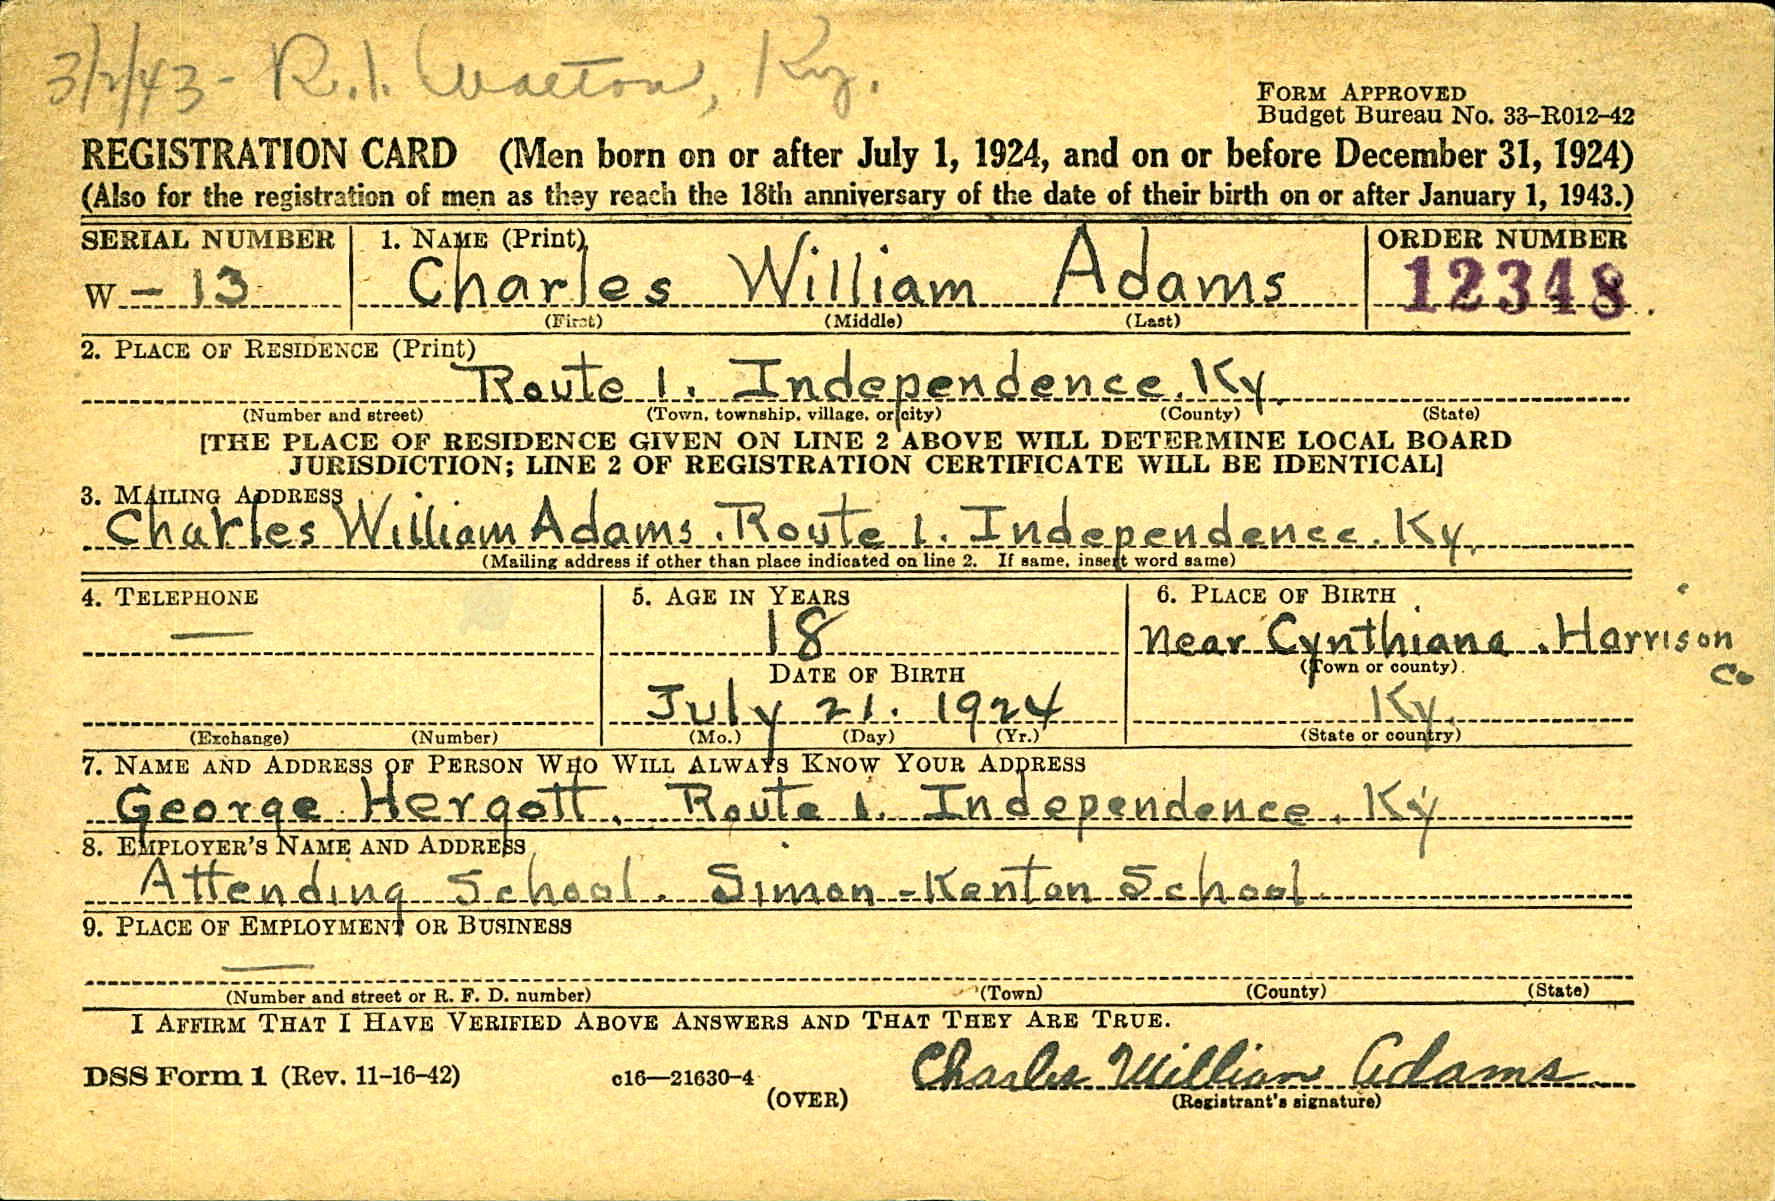 3/2/43 - R.1. Walton, Ky.
FORM APPROVED
Budget Bureau No. 33-R012-42
REGISTRATION CARD (Men born on or after July 1, 1924, and on or before December 31, 1924)
(Also for the registration of men as they reach the 18th anniversary of the date of their birth on or after January 1, 1943.)
SERIAL NUMBER 1. NAME (Print) ORDER NUMBER
W - 13 Charles William Adams 12348
(First) (Middle) (Last)
2. PLACE OF RESIDENCE (Print)
Route 1. Independence, Ky.
(Number and street) (Town, township, village, or city) (County) (State)
[THE PLACE OF RESIDENCE GIVEN ON LINE 2 ABOVE WILL DETERMINE LOCAL BOARD
JURISDICTION; LINE 2 OF REGISTRATION CERTIFICATE WILL BE IDENTICAL]
3. MAILING ADDRESS
Charles William Adams. Route 1. Independence. Ky.
(Mailing address if other than place indicated on line 2. If same, insert word same)
4. TELEPHONE 5. AGE IN YEARS 6. PLACE OF BIRTH
— 18 Near Cynthiana. Harrison Co
DATE OF BIRTH (Town or county)
July 21. 1924 Ky.
(Exchange) (Number) (Mo.) (Day) (Yr.) (State or country)
7. NAME AND ADDRESS OF PERSON WHO WILL ALWAYS KNOW YOUR ADDRESS
George Hergott, Route 1. Independence, Ky
8. EMPLOYER'S NAME AND ADDRESS
Attending School. Simon-Kenton School.
9. PLACE OF EMPLOYMENT OR BUSINESS
—
(Number and street or R. F. D. number) (Town) (County) (State)
I AFFIRM THAT I HAVE VERIFIED ABOVE ANSWERS AND THAT THEY ARE TRUE.
DSS Form 1 (Rev. 11-16-42) c16—21630-4 Charles William Adams
(OVER) (Registrant's signature)